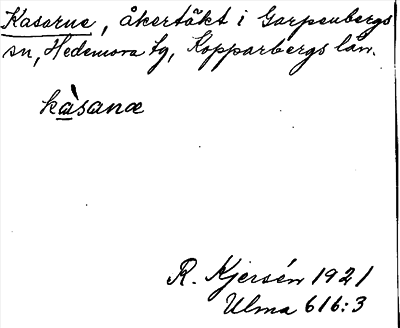 Kasarne, åkertäkt i Garpenbergs
sn, Hedemora tg, Kopparbergs län.
kàsanæ
R. Kjersén 1921
Ulma 616:3